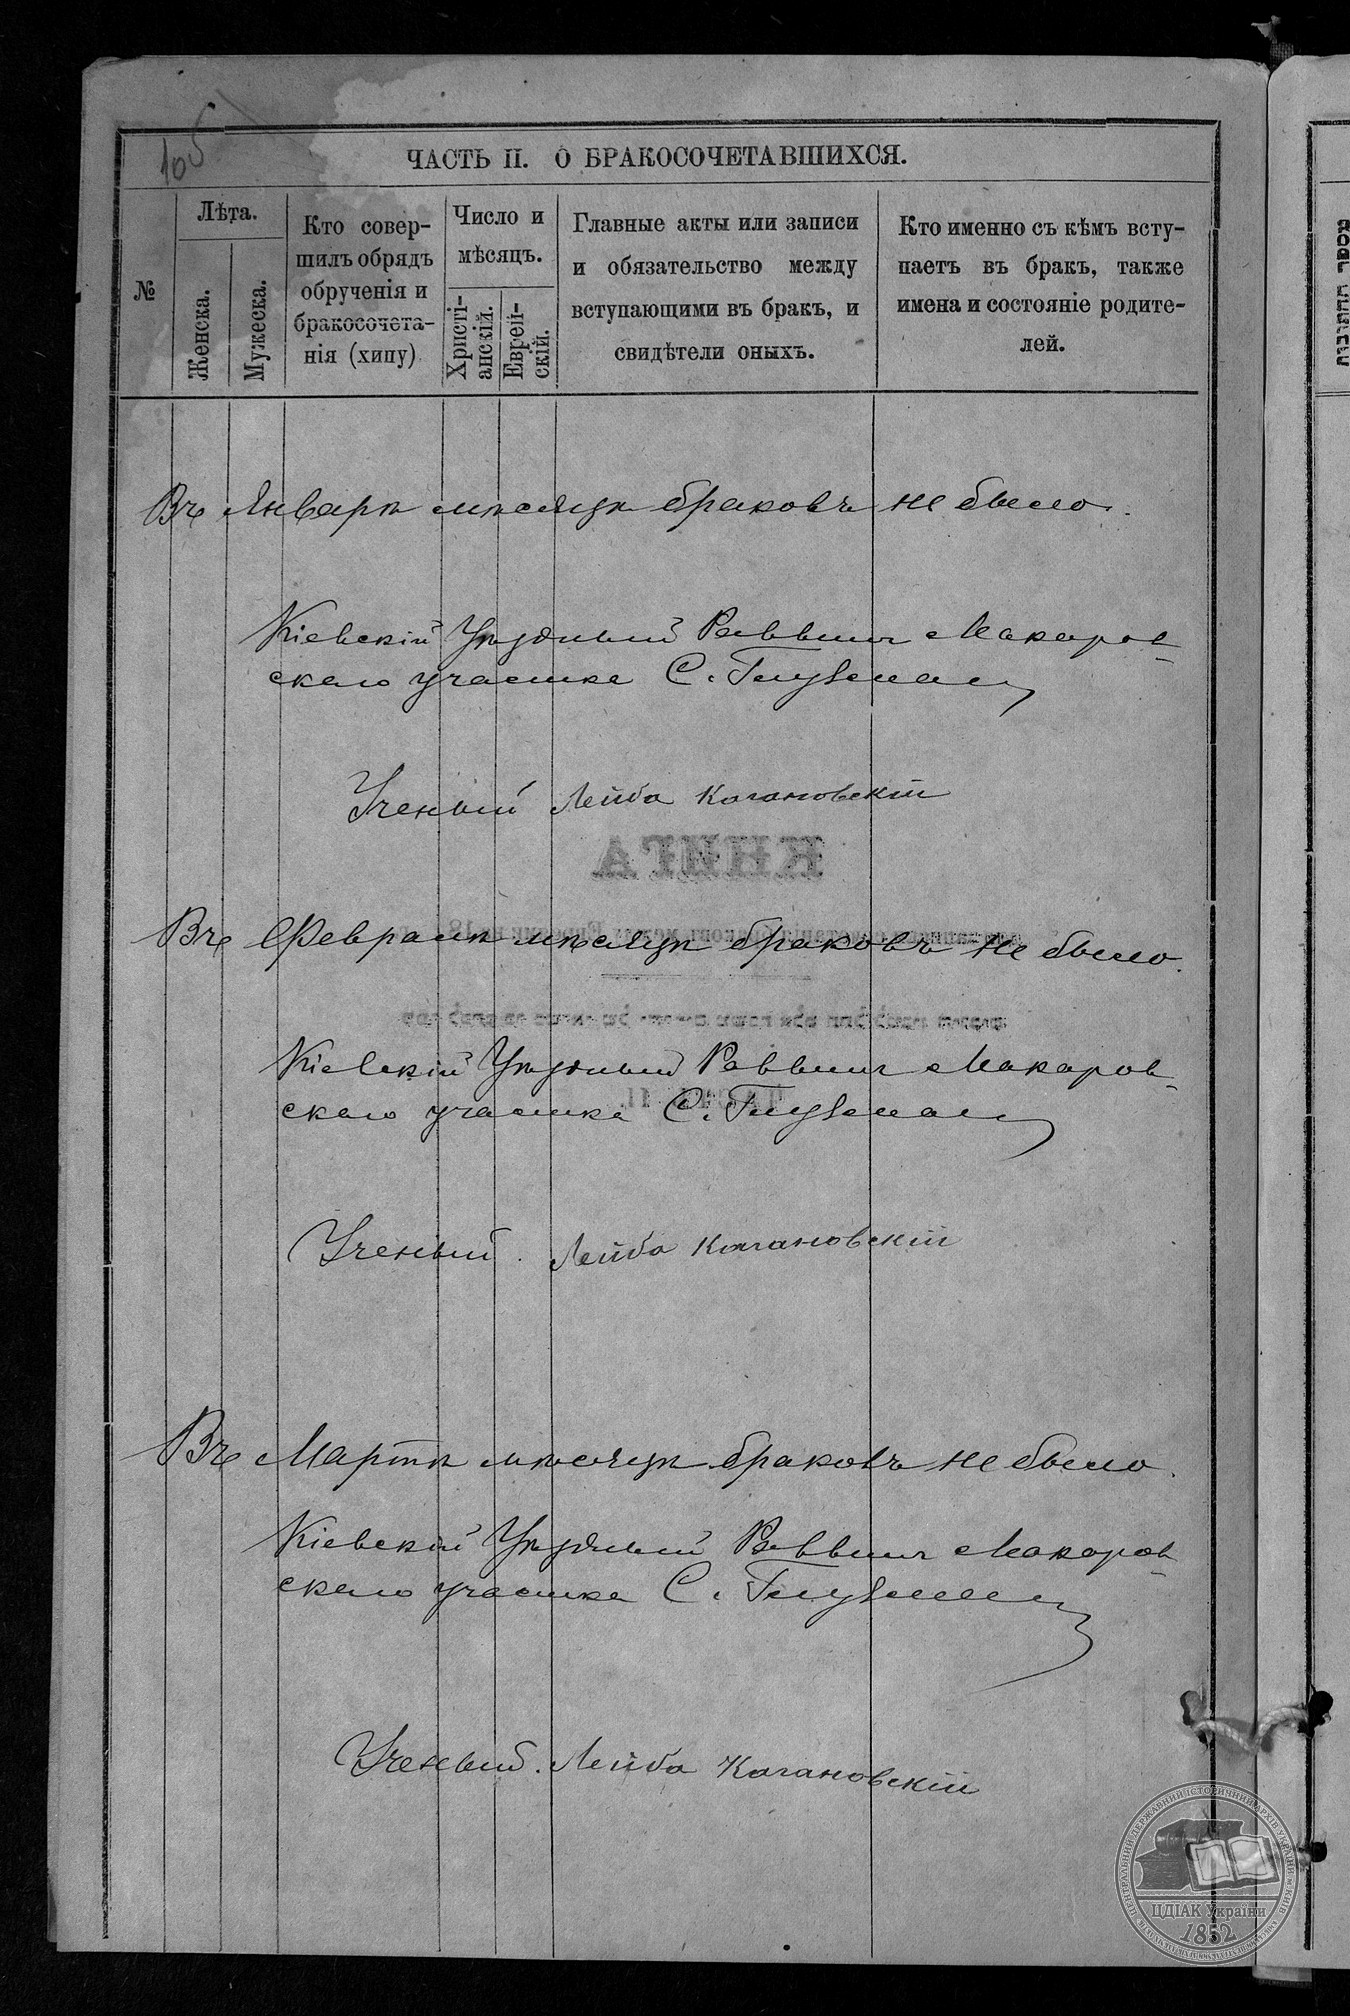 105
ЧАСТЬ II. О БРАКОСОЧЕТАВШИХСЯ.
№
Лѣта.
Женска.
Мужеска.
Кто совер-
шилъ обрядъ
обрученія и
бракосочета-
нія (хипу)
Число и
мѣсяцъ.
Христі-
анскій.
Еврей-
скій.
Главные акты или записи
и обязательство между
вступающими въ бракъ, и
свидѣтели оныхъ.
Кто именно съ кѣмъ всту-
паетъ въ бракъ, также
имена и состояніе родите-
лей.
Въ Январѣ мѣсяцѣ браковъ не было.
Кіевскій Уѣздный Раввинъ Макаров-
скаго участка С. Глузман
Ученый Лейба Кагановскій
КНИГА
Въ Февралѣ мѣсяцѣ браковъ не было.
Кіевскій Уѣздный Раввинъ Макаров-
скаго участка С. Глузман
ЧАСТЬ II.
Ученый. Лейба Кагановскій
Въ Мартѣ мѣсяцѣ браковъ не было.
Кіевскій Уѣздный Раввинъ Макаров-
скаго участка С. Глузман
Ученый. Лейба Кагановскій
ЦЕНТРАЛЬНИЙ ДЕРЖАВНИЙ ІСТОРИЧНИЙ АРХІВ УКРАЇНИ, М. КИЇВ
ЦДІАК України
1852